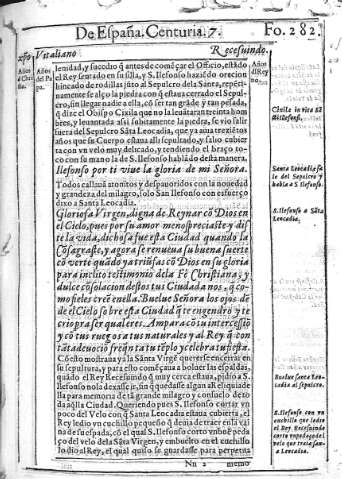 De España. Centuria. 7. Fo. 282.
Vitaliano Recesuindo.
lenidad, y sucedio q̃ antes de començar el Officio, estãdo
el Rey sentado en su silla, y S. Ilefonso haziẽdo oracion
hincado de rodillas jũto al Sepulcro dela Santa, repẽti-
namente se alço la piedra con q̃ estaua cerrado el Sepul-
cro, sin llegar nadie a ella, cõ ser tan grãde y tan pesada,
q̃ dize el Obispo Cixila que no la leuãtaran treinta hom
bres, y leuantada assi subitamente la piedra, se vio salir
fuera del Sepulcro Sãta Leocadia, que ya auia trezietos
años que su Cuerpo estaua alli sepultado, y salio cubier
ta con vn velo muy delicado, y tendiendo el braço to-
co con su mano la de S. Ilefonso hablãdo desta manera.
Ilefonso por ti viue la gloria de mi Señora.
Todos callauã atonitos y despauoridos con la nouedad
y grandeza del milagro, solo San Ilefonso con esfuerço
dixo a Santa Leocadia.
Gloriosa Virgen, digna de Reynar cõ Dios en
el Cielo, pues por su amor menospreciaste y dis
te la vida, dichosa fue esta Ciudad quando la
Cõsagraste, y agora se renueua su buena suerte
cõ verte quãdo ya triũfas cõ Dios en su gloria
para inclito testimonio dela Fè Christiana; y
dulce cõsolacion destos tus Ciudadanos, q̃ co-
mo fieles creẽ en ella. Buelue Señora los ojos dẽ
de el Cielo sobre esta Ciudad q̃ te engendro y te
crio para ser qual eres. Ampara cõ tu intercessiõ
y cõ tus ruegos a tus naturales y al Rey q̃ con
tãta deuociõ freq̃ẽta tu tẽplo y celebra tu fiesta.
Cõ esto mostraua ya la Sãnta Virgẽ querer se encerrar en
su sepultura, y para esto començaua a boluer las espaldas,
quãdo el Rey Recesuindo q̃ muy cerca estaua, pidio a S.
Ilefonso no la dexasse ir, sin que dasse algun alli enquista
lla para memoria de tã grande milagro y consuelo de to
da aq̃lla Ciudad. Queriendo pues S. Ilefonso cortar vn
poco del Velo con q̃ Santa Leocadia estaua cubierta, el
Rey le dio vn cuchillo pequeño q̃ deuia de traer en la vai
na de su espada, cõ el qual S. Ilefonso corto vnbuẽ pe-
daço del velo dela Sãta Virgen, y embuelto en el cuchillo
lo dio al Rey, el qual quiso se guardasse para perpetua
Nn 2 memo
Santa Leocadia sa
le del Sepulcro y
habla a S. Ilefonso.
S. Ilefonso a Sãta
Leocadia.
Buelue Santa Leo-
cadia al sepulcro.
S. Ilefonso con vn
cuchillo que le dio
el Rey Recesuindo
corto vn pedaço del
velo que traia Santa
Leocadia.